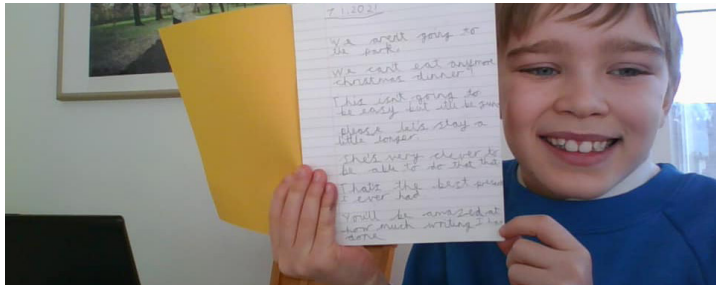 7.1.2021
We arent going to
the park.
We can't eat anymore
christmas dinner!
This isnt going to
be easy but itll be fun
please let's stay a
little longer.
She's very clever to
be able to do that
That's the best
I ever had
You'll be amazed at
how much writing I
done